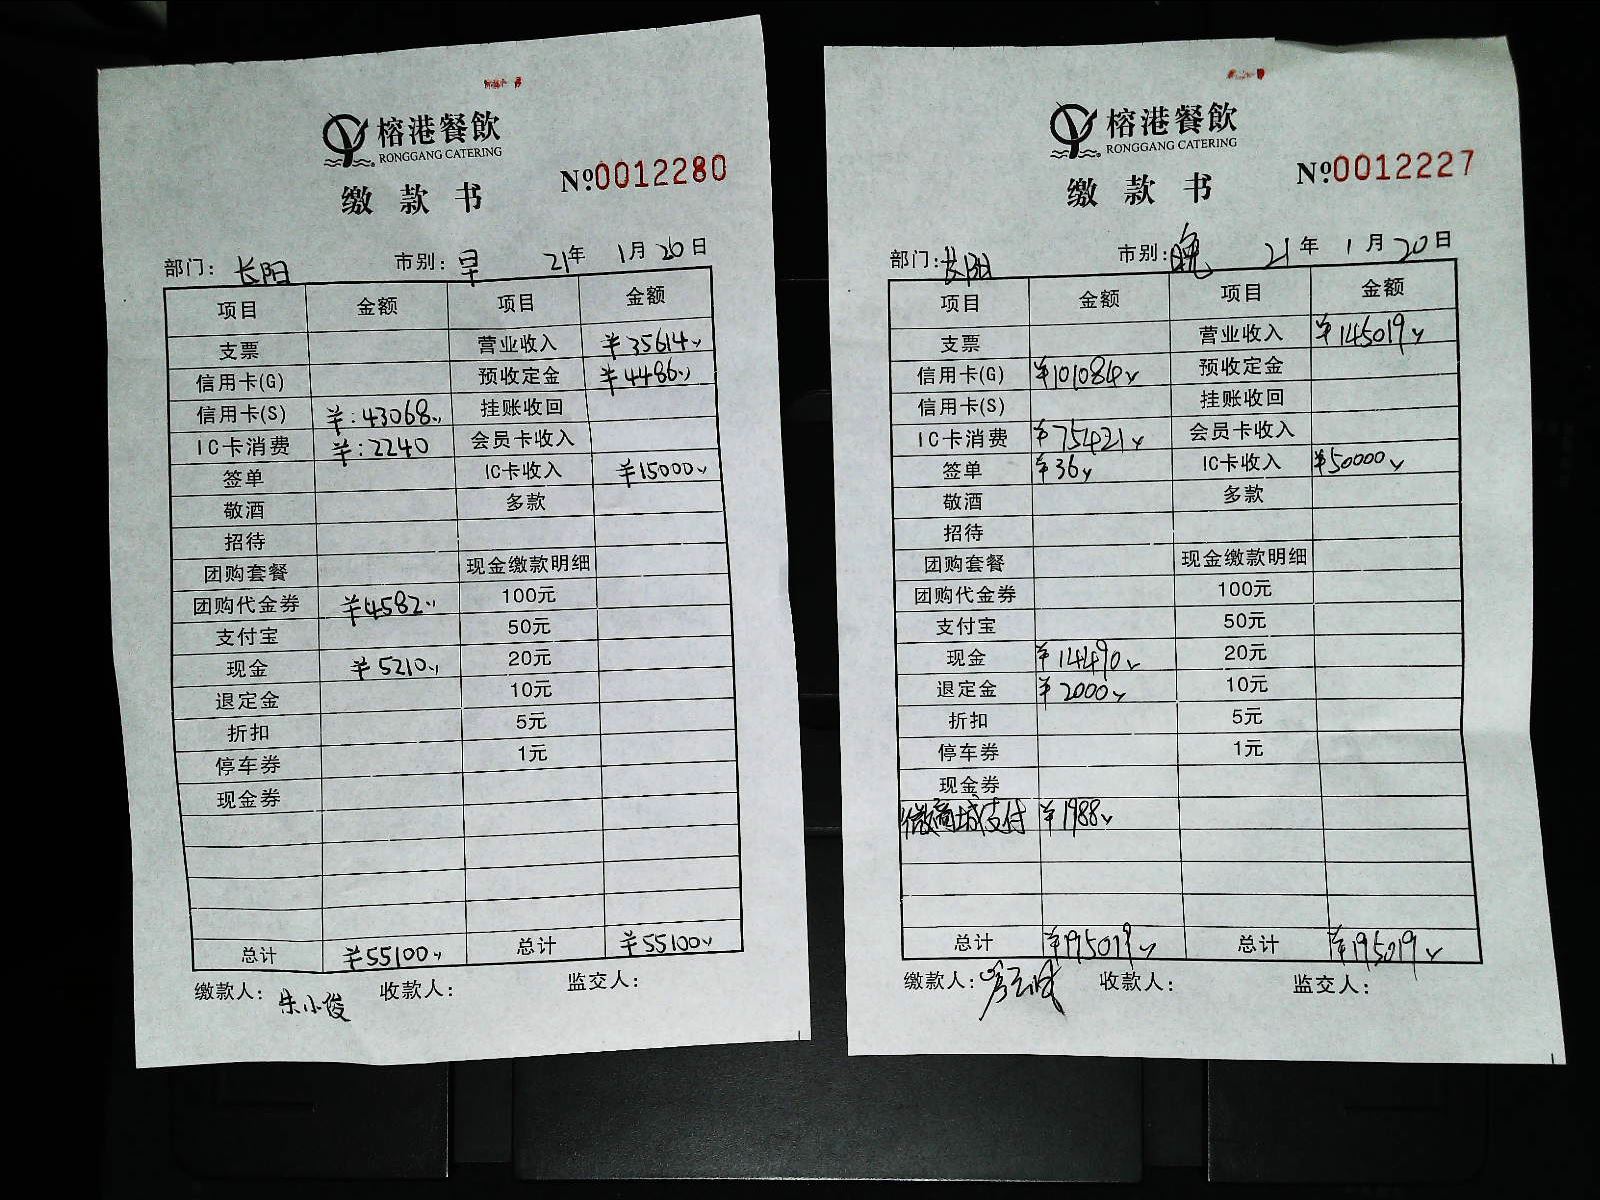 榕港餐飲
RONGGANG CATERING
缴款书
Nº0012280
部门: 长阳 市别: 早 21年 1月 20日
项目 金额 项目 金额
支票 营业收入 ¥35614
信用卡(G) 预收定金 ¥4486
信用卡(S) ¥:43068 挂账收回
IC卡消费 ¥:2240 会员卡收入
签单 IC卡收入 ¥15000
敬酒 多款
招待
团购套餐 现金缴款明细
团购代金券 ¥4582 100元
支付宝 50元
现金 ¥5210 20元
退定金 10元
折扣 5元
停车券 1元
现金券
总计 ¥55100 总计 ¥55100
缴款人: 朱小俊 收款人: 监交人:
榕港餐飲
RONGGANG CATERING
缴款书
Nº0012227
部门: 长阳 市别: 晚 21年 1月 20日
项目 金额 项目 金额
支票 营业收入 ¥145019
信用卡(G) ¥101084 预收定金
信用卡(S) 挂账收回
IC卡消费 ¥75421 会员卡收入
签单 ¥36 IC卡收入 ¥50000
敬酒 多款
招待
团购套餐 现金缴款明细
团购代金券 100元
支付宝 50元
现金 ¥14490 20元
退定金 ¥2000 10元
折扣 5元
停车券 1元
现金券
微商城支付 ¥1988
总计 ¥195019 总计 ¥195019
缴款人: 收款人: 监交人: